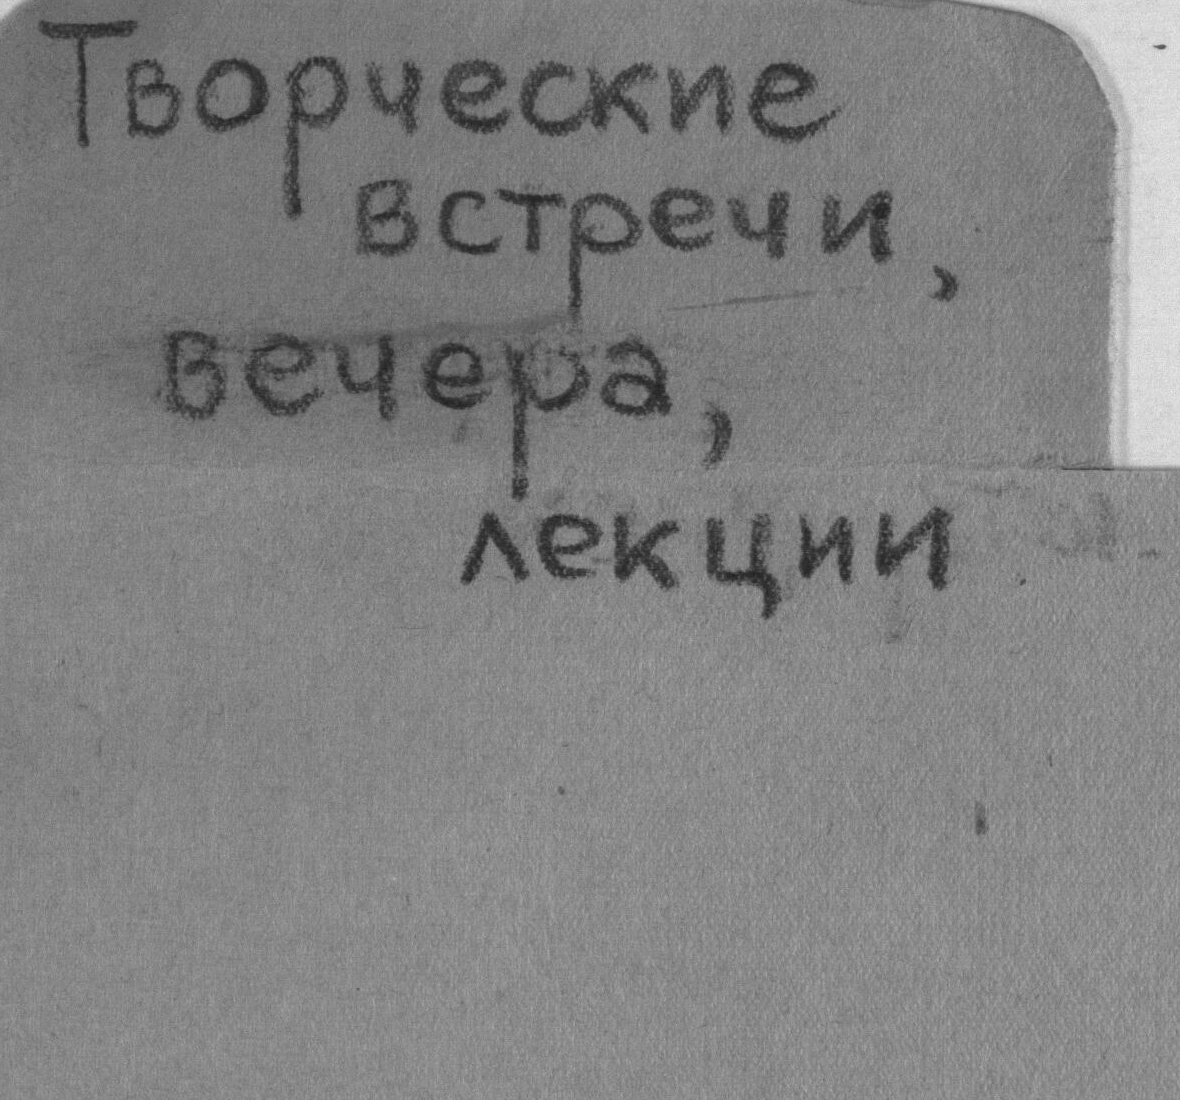 Творческие
встречи,
вечера,
лекции